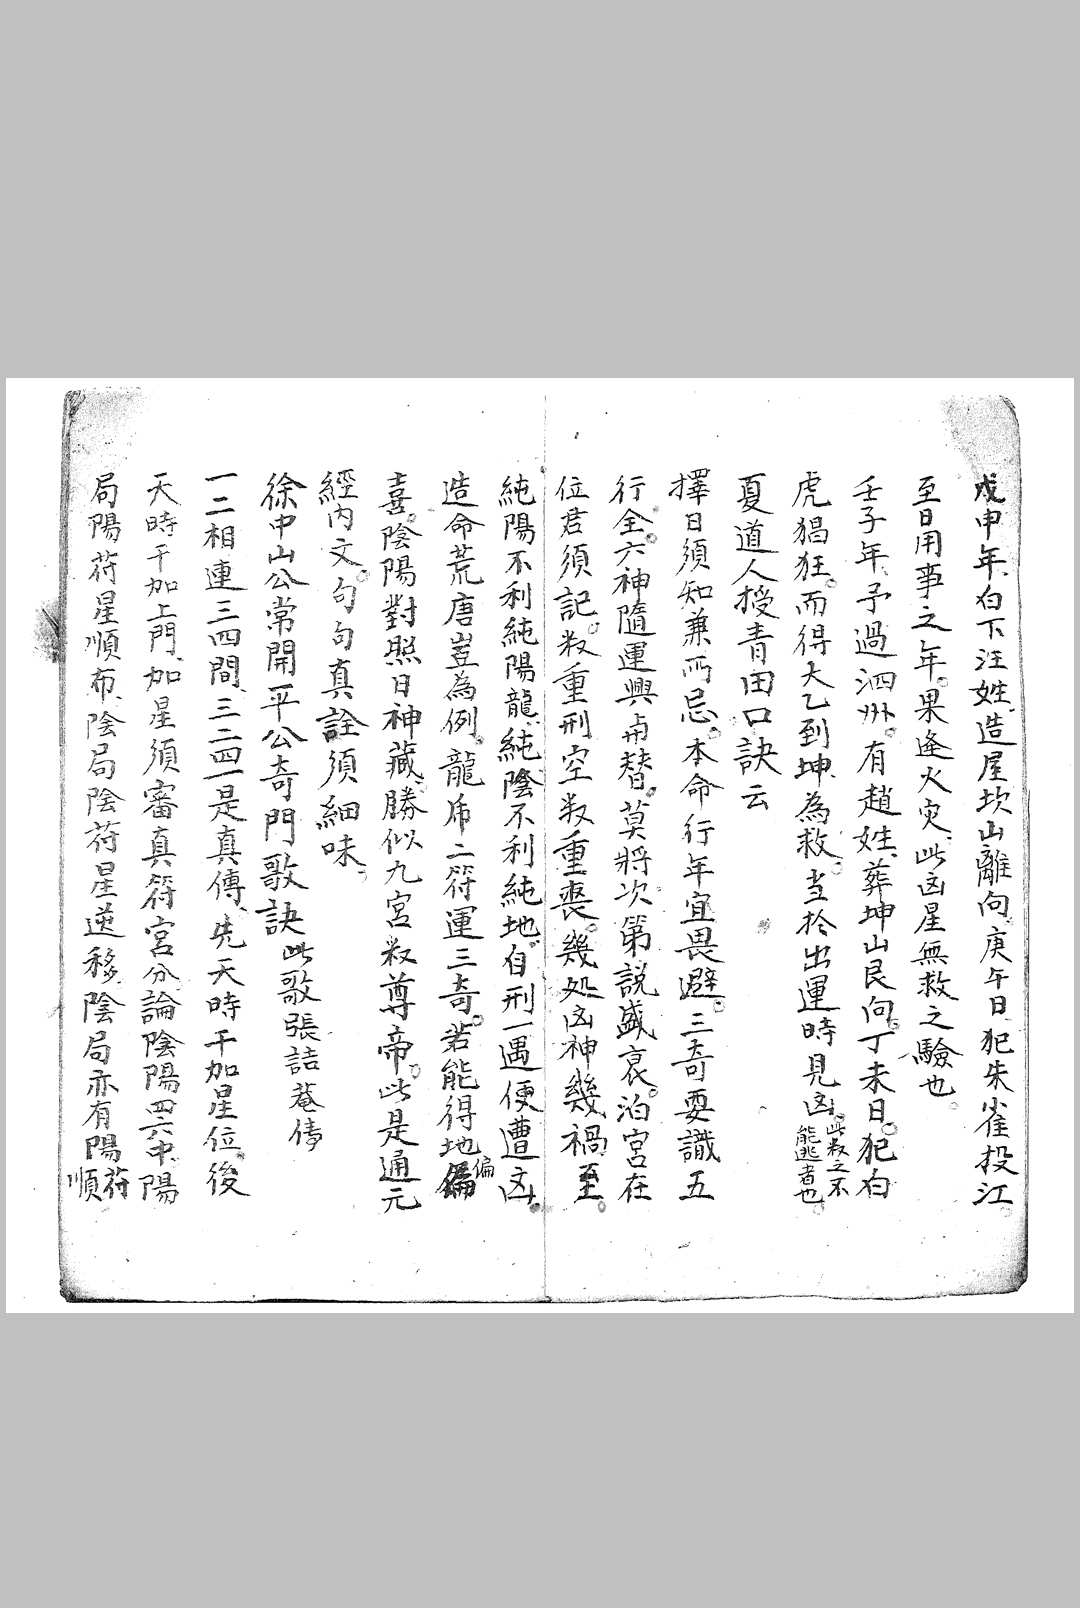 戊申年、白下汪姓、造屋坎山離向、庚午日、犯朱雀投江。
至日用事之年。果逢火灾、此凶星無救之驗也。
壬子年、予過泗州。有趙姓、葬坤山艮向。丁未日。犯白
虎猖狂。而得太乙到坤、為救。当於出運時見凶。此杀之不能逃者也。
夏道人授青田口訣云
擇日須知兼所忌。本命行年宜畏避。三奇要識五
行全。六神隨運興與替。莫將次第説盛衰。泊宮在
位君須記。杀重刑空杀重喪。幾处凶神幾禍至。
純陽不利純陽龍、純陰不利純地。自刑一遇便遭凶。
造命荒唐豈為例。龍虎二符運三奇。若能得地偏偏
喜。陰陽對照日神藏、勝似九宮杀尊帝。此是通元
經内文。句句真詮須細味。
徐中山公常開平公奇門歌訣此歌張喆菴傳
一二相連三四間、三二四一是真傳、先天時干加星位。後
天時干加上門、加星須審真符宮分論陰陽四六中、陽
局陽符星順布、陰局陰符星逆移、陰局亦有陽符順